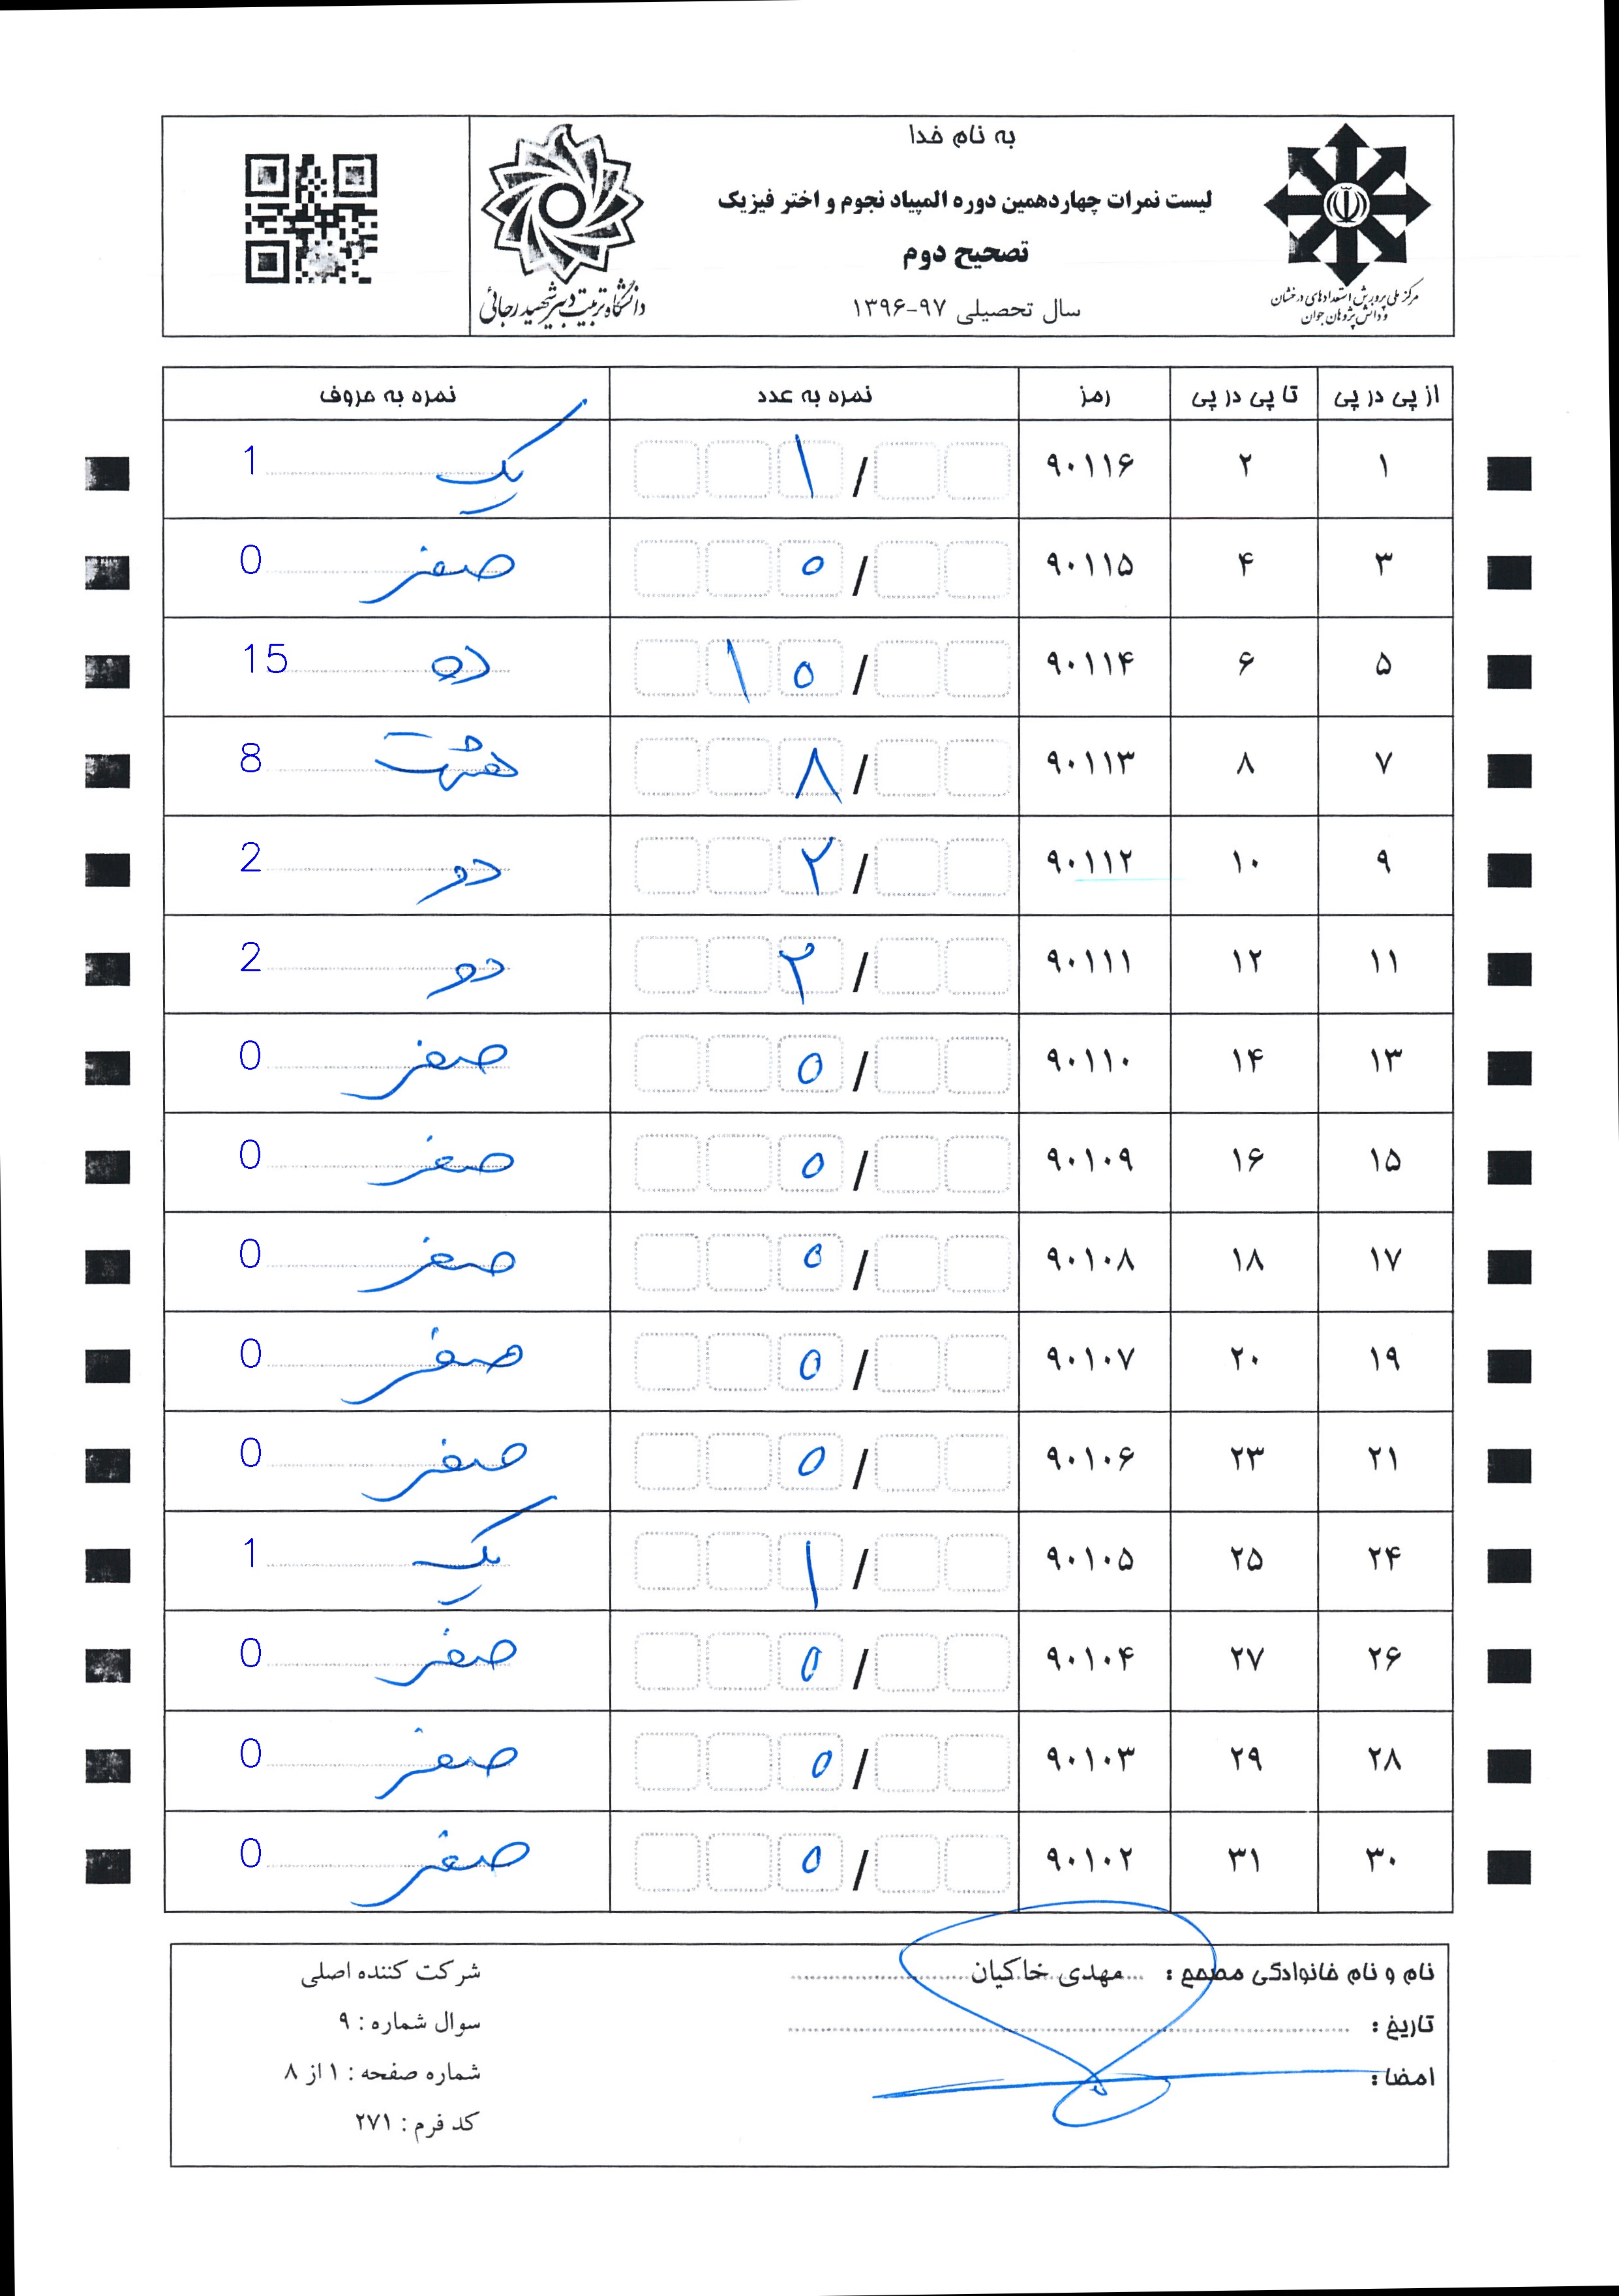 به نام خدا
لیست نمرات چهاردهمین دوره المپیاد نجوم و اختر فیزیک
تصحیح دوم
سال تحصیلی ۹۷-۱۳۹۶
مرکز ملی پرورش استعدادهای درخشان
و دانش پژوهان جوان
دانشگاه تربیت دبیر شهید رجائی
از پی در پی تا پی در پی رمز نمره به عدد نمره به حروف
۱ ۲ ۹۰۱۱۶ / ۱ یک 1
۳ ۴ ۹۰۱۱۵ / ۰ صفر 0
۵ ۶ ۹۰۱۱۴ / ۱۰ ده 15
۷ ۸ ۹۰۱۱۳ / ۸ هشت 8
۹ ۱۰ ۹۰۱۱۲ / ۲ دو 2
۱۱ ۱۲ ۹۰۱۱۱ / ۲ دو 2
۱۳ ۱۴ ۹۰۱۱۰ / ۰ صفر 0
۱۵ ۱۶ ۹۰۱۰۹ / ۰ صفر 0
۱۷ ۱۸ ۹۰۱۰۸ / ۰ صفر 0
۱۹ ۲۰ ۹۰۱۰۷ / ۰ صفر 0
۲۱ ۲۳ ۹۰۱۰۶ / ۰ صفر 0
۲۴ ۲۵ ۹۰۱۰۵ / ۱ یک 1
۲۶ ۲۷ ۹۰۱۰۴ / ۰ صفر 0
۲۸ ۲۹ ۹۰۱۰۳ / ۰ صفر 0
۳۰ ۳۱ ۹۰۱۰۲ / ۰ صفر 0
نام و نام خانوادگی مصحح : مهدی خاکیان
تاریخ :
امضا :
شرکت کننده اصلی
سوال شماره : ۹
شماره صفحه : ۱ از ۸
کد فرم : ۲۷۱